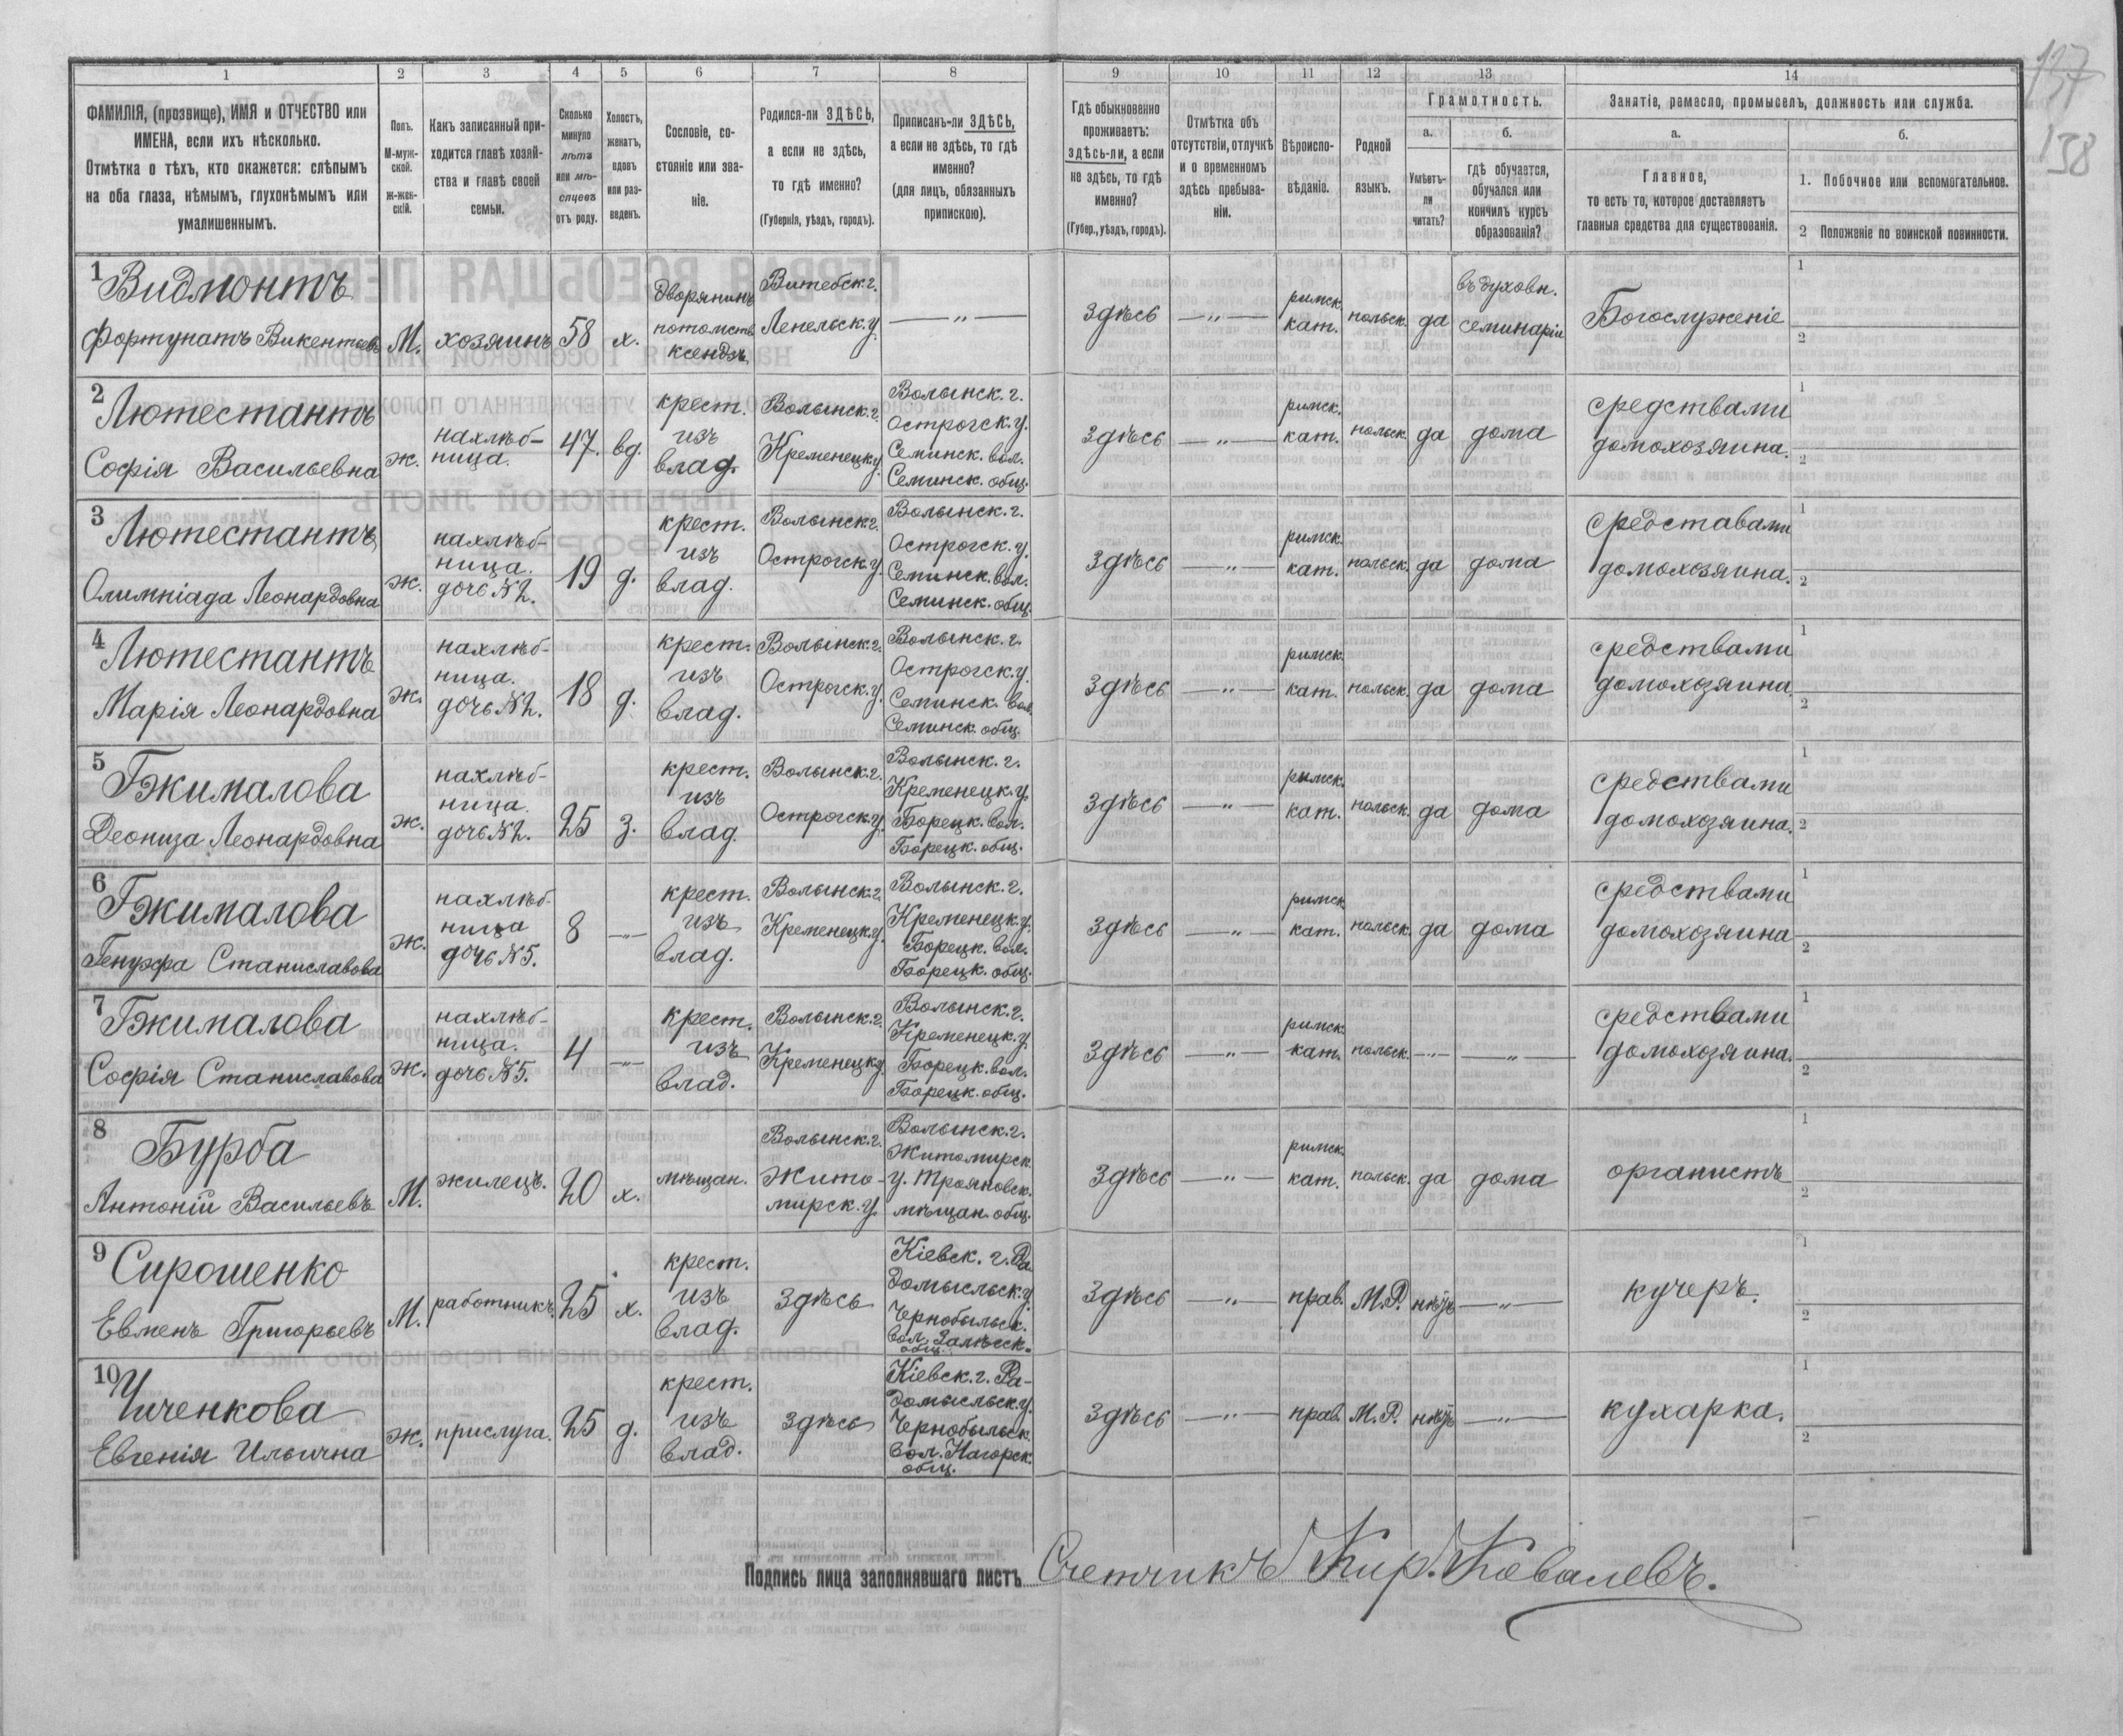 137
138
1 2 3 4 5 6 7 8 9 10 11 12 13 14
ФАМИЛІЯ, (прозвище), ИМЯ и ОТЧЕСТВО или ИМЕНА, если ихъ нѣсколько.
Отмѣтка о тѣхъ, кто окажется: слѣпымъ на оба глаза, нѣмымъ, глухонѣмымъ или умалишеннымъ.
Полъ. М-мужской. Ж-женскій.
Какъ записанный приходится главѣ хозяйства и главѣ своей семьи.
Сколько минуло лѣтъ или мѣсяцевъ отъ роду.
Холостъ, женатъ, вдовъ или разведенъ.
Сословіе, состояніе или званіе.
Родился-ли ЗДѢСЬ, а если не здѣсь, то гдѣ именно? (Губернія, уѣздъ, городъ).
Приписанъ-ли ЗДѢСЬ, а если не здѣсь, то гдѣ именно? (для лицъ, обязанныхъ припискою).
Гдѣ обыкновенно проживаетъ: здѣсь-ли, а если не здѣсь, то гдѣ именно? (Губер., уѣздъ, городъ).
Отмѣтка объ отсутствіи, отлучкѣ и о временномъ здѣсь пребываніи.
Вѣроисповѣданіе.
Родной языкъ.
Грамотность.
а. Умѣетъ-ли читать?
б. гдѣ обучается, обучался или кончилъ курсъ образованія?
Занятіе, ремесло, промыселъ, должность или служба.
а. Главное, то есть то, которое доставляетъ главныя средства для существованія.
б. 1. Побочное или вспомогательное.
2 Положеніе по воинской повинности.
1 Видмонтъ Фортунатъ Викентьевъ М. хозяинъ 58 х. дворянинъ потомств. ксендзъ Витебск. г. Лепельск. у. —„— здѣсь —„— римск. кат. польск. да въ духовн. семинаріи Богослуженіе 1 2
2 Лютестантъ Софія Васильевна ж. нахлѣбница. 47. вд. крест. изъ влад. Волынск. г. Кременецк. у. Волынск. г. Острогск. у. Семинск. вол. Семинск. общ. здѣсь —„— римск. кат. польск. да дома средствами домохозяина. 1 2
3 Лютестантъ Олимпіада Леонардовна ж. нахлѣбница. дочь №2. 19 д. крест. изъ влад. Волынск. г. Острогск. у. Волынск. г. Острогск. у. Семинск. вол. Семинск. общ. здѣсь —„— римск. кат. польск. да дома средставами домохозяина. 1 2
4 Лютестантъ Марія Леонардовна ж. нахлѣбница. дочь №2. 18 д. крест. изъ влад. Волынск. г. Острогск. у. Волынск. г. Острогск. у. Семинск. вол. Семинск. общ. здѣсь —„— римск. кат. польск. да дома средствами домохозяина 1 2
5 Гжималова Деониза Леонардовна ж. нахлѣбница. дочь №2. 25 з. крест. изъ влад. Волынск. г. Острогск. у. Волынск. г. Кременецк. у. Борецк. вол. Борецк. общ. здѣсь —„— римск. кат. польск. да дома средствами домохозяина. 1 2
6 Гжималова Генуэфа Станиславова ж. нахлѣбница дочь №5. 8 —„— крест. изъ влад. Волынск. г. Кременецк. у. Волынск. г. Кременецк. у. Борецк. вол. Борецк. общ. здѣсь —„— римск. кат. польск. да дома средствами домохозяина 1 2
7 Гжималова Софія Станиславова ж. нахлѣбница. дочь №5. 4 —„— крест. изъ влад. Волынск. г. Кременецк. у. Волынск. г. Кременецк. у. Борецк. вол. Борецк. общ. здѣсь —„— римск. кат. польск. —„— —„— средствами домохозяина. 1 2
8 Бурба Антоній Васильевъ М. жилецъ. 20 х. мѣщан. Волынск. г. Житомирск. у. Волынск. г. Житомирск. у. Трояновск. мѣщан. общ. здѣсь —„— римск. кат. польск. да дома органистъ 1 2
9 Сирошенко Евменъ Григорьевъ М. работникъ. 25 х. крест. изъ влад. здѣсь Кіевск. г. Радомысльск. у. Чернобыльск. вол. Залѣсск. общ. здѣсь —„— прав. М.Р. нѣтъ —„— кучеръ. 1 2
10 Ичченкова Евгенія Ильична ж. прислуга. 25 д. крест. изъ влад. здѣсь Кіевск. г. Радомысльск. у. Чернобыльск. вол. Нагорск. общ. здѣсь —„— прав. М.Р. нѣтъ —„— кухарка. 1 2
Подпись лица заполнявшаго листъ Счетчикъ Кир. Ковалевъ.